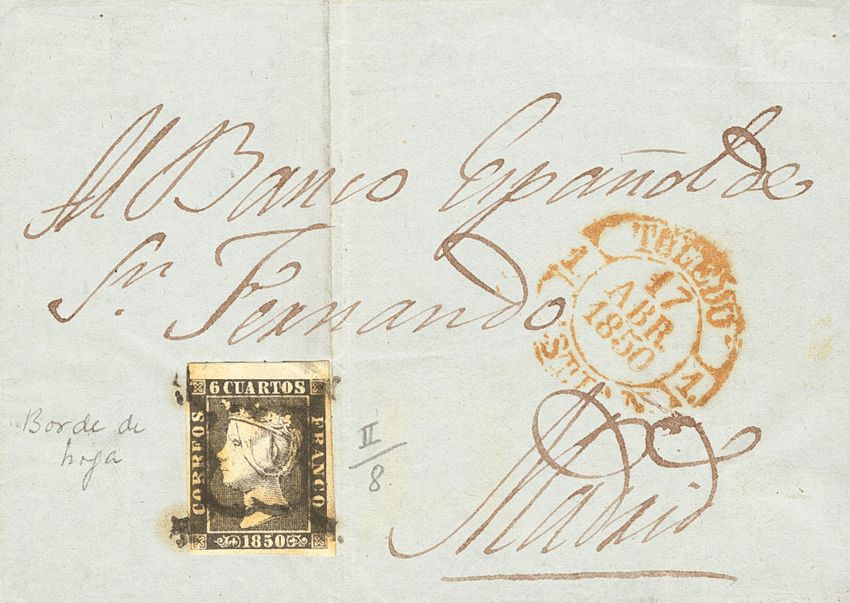 Al Banco Español de
Sn. Fernando
TOLEDO
17
ABR.
1850
Borde de
hoja
6 CUARTOS
CORREOS
FRANCO
1850
II
8
Madrid